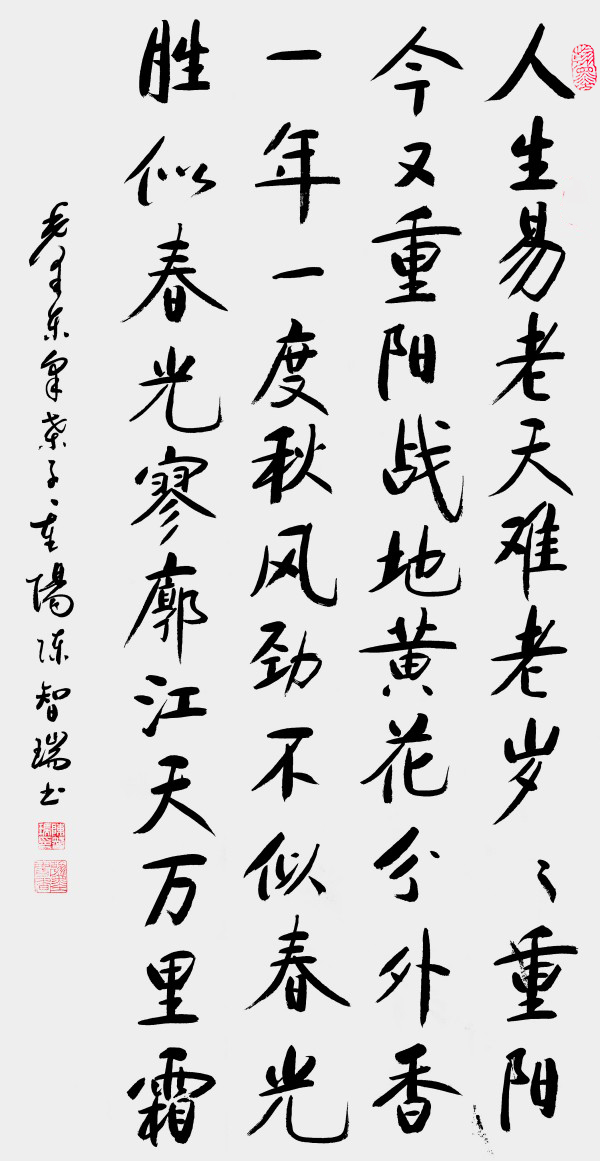 人生易老天难老岁々重阳
今又重阳战地黄花分外香
一年一度秋风劲不似春光
胜似春光寥廓江天万里霜
毛泽东采桑子、重陽陈智瑞书